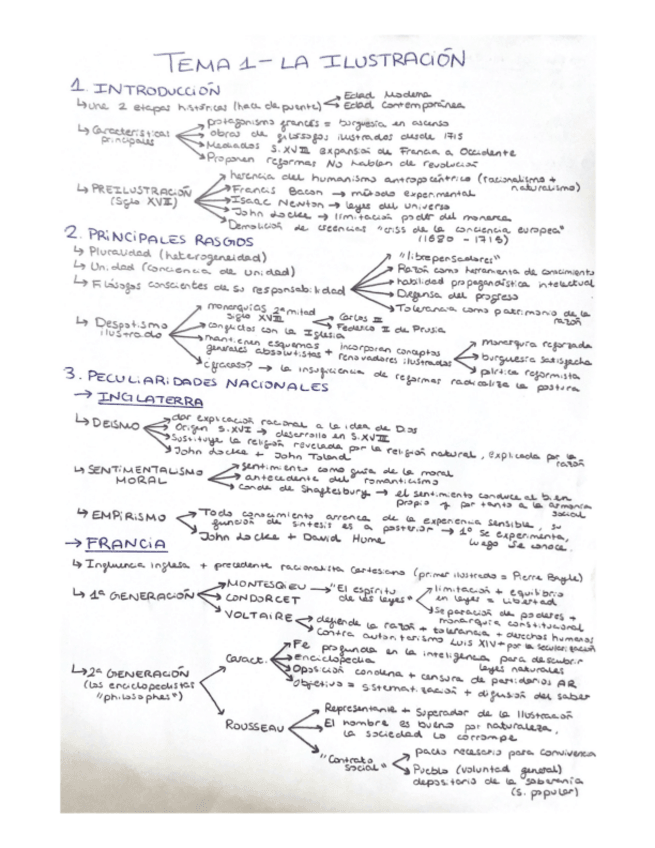 TEMA 1 - LA ILUSTRACIÓN
1. INTRODUCCIÓN
↳ Une 2 etapas históricas (hace de puente) → Edad Moderna
→ Edad Contemporánea
↳ Características principales
→ protagonismo francés = burguesía en ascenso
→ obras de filósofos ilustrados desde 1715
→ Mediados S.XVIII expansión de Francia a Occidente
→ Proponen reformas NO hablan de revolución
↳ PREILUSTRACIÓN (Siglo XVII)
→ herencia del humanismo antropocéntrico (racionalismo + naturalismo)
→ Francis Bacon → método experimental
→ Isaac Newton → leyes del universo
→ John Locke → limitación poder del monarca
→ Demolición de creencias "crisis de la conciencia europea"
(1680 - 1715)
2. PRINCIPALES RASGOS
↳ Pluralidad (heterogeneidad)
↳ Unidad (conciencia de unidad)
↳ Filósofos conscientes de su responsabilidad
→ "librepensadores"
→ Razón como herramienta de conocimiento
→ habilidad propagandística intelectual
→ Defensa del progreso
→ Tolerancia como patrimonio de la razón
↳ Despotismo ilustrado
→ monarquías 2ª mitad siglo XVIII → Carlos III
→ Federico II de Prusia
→ conflictos con la Iglesia
→ mantienen esquemas generales absolutistas + incorporan conceptos renovadores ilustrados
→ monarquía reforzada
→ burguesía satisfecha
→ política reformista
→ ¿fracaso? → la insuficiencia de reformas radicaliza la postura
3. PECULIARIDADES NACIONALES
→ INGLATERRA
↳ DEISMO
→ dar explicación racional a la idea de Dios
→ Origen S.XVI → desarrollo en S.XVII
→ Sustituye la religión revelada por la religión natural, explicada por la razón
→ John Locke + John Toland
↳ SENTIMENTALISMO MORAL
→ sentimiento como guía de la moral
→ antecedente del romanticismo
→ Conde de Shaftesbury → el sentimiento conduce al bien propio y por tanto a la armonía social
↳ EMPIRISMO
→ Todo conocimiento arranca de la experiencia sensible, su función de síntesis es a posterior → 1º se experimenta, luego se conoce.
→ John Locke + David Hume
→ FRANCIA
↳ Influencia inglesa + precedente racionalista cartesiano (primer ilustrado = Pierre Bayle)
↳ 1ª GENERACIÓN
→ MONTESQIEU → "El espíritu de las leyes"
→ limitación + equilibrio en leyes = libertad
→ separación de poderes + monarquía constitucional
→ CONDORCET
→ VOLTAIRE
→ defiende la razón + tolerancia + derechos humanos
→ Contra autoritarismo Luis XIV + por la secularización
↳ 2ª GENERACIÓN (los enciclopedistas "philosophes")
→ Caract.
→ Fe profunda en la inteligencia para descubrir leyes naturales
→ enciclopedia
→ Oposición condena + censura de partidarios AR
→ Objetivo = sistematización + difusión del saber
→ ROUSSEAU
→ Representante + Superador de la Ilustración
→ El hombre es bueno por naturaleza, la sociedad lo corrompe
→ "Contrato social"
→ pacto necesario para convivencia
→ Pueblo (voluntad general) depositario de la soberanía (S. popular)